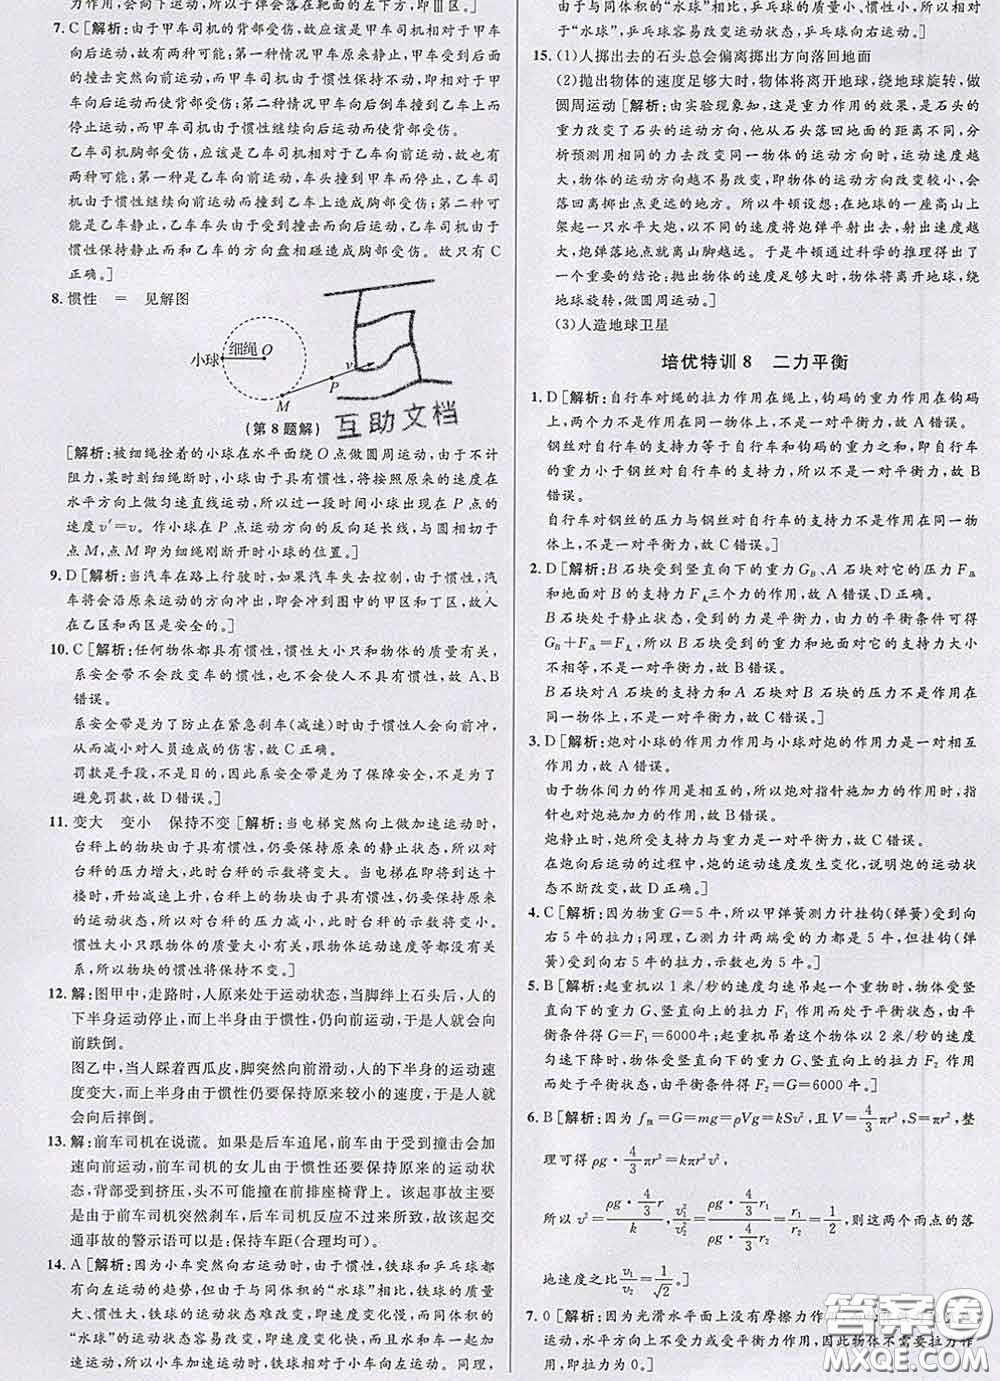 力作用,会向下运动,所以子弹会落在靶面的左下方,即Ⅲ区。]
7. C [解析:由于甲车司机的背部受伤,故应该是甲车司机相对于甲车
向后运动,故有两种可能:第一种情况甲车向前运动,而受到后面
的撞击突然向前运动,而甲车司机由于惯性保持不动,到时甲车
向前运动而使背部受伤;第二种情况甲车向后倒车撞到乙车上而
停止运动,而甲车司机由于惯性继续向后运动而使背部受伤。
乙车司机胸部受伤,应该是乙车司机相对于乙车向前运动,故也
有两种可能:第一种是乙车向前运动,车头撞到甲车而停止,司
机由于惯性继续向前运动,而撞到乙车上造成胸部受伤;第二种可
能是乙车静止,乙车车头由于受到撞击而向后运动,而乙车司机由于
惯性保持静止而和乙车的方向盘相碰造成胸部受伤。故只有 C
正确。]
8. 惯性 = 见解图
小球 细绳 O
v
P
M
(第 8 题解)
互助文档
[解析:被细绳拴着的小球在水平面绕 O 点做圆周运动,由于不计
阻力,某时刻细绳断时,小球由于具有惯性,将按照原来的速度在
水平方向上做匀速直线运动,所以过一段时间小球出现在 P 点的
速度 v′=v。作小球在 P 点运动方向的反向延长线,与圆相切于
点 M,点 M 即为细绳刚断开时小球的位置。]
9. D [解析:当汽车在路上行驶时,如果汽车失去控制,由于惯性,汽
车将会沿原来运动的方向冲出,即会冲到图中的甲区和丁区,故人
在乙区和丙区是安全的。]
10. C [解析:任何物体都具有惯性,惯性大小只和物体的质量有关,
系安全带不会改变车的惯性,也不会改变人的惯性,故 A、B
错误。
系安全带是为了防止在紧急刹车(减速)时由于惯性人会向前冲,
从而减小对人员造成的伤害,故 C 正确。
罚款是手段,不是目的,因此系安全带是为了保障安全,不是为了
避免罚款,故 D 错误。]
11. 变大 变小 保持不变 [解析:当电梯突然向上做加速运动时,
台秤上的物块由于具有惯性,仍要保持原来的静止状态,所以对
台秤的压力增大,此时台秤的示数将变大。当电梯在即将到达十
楼时,开始减速上升,台秤上的物块由于具有惯性,仍要保持原来
的运动状态,所以对台秤的压力减小,此时台秤的示数将变小。
惯性大小只跟物体的质量大小有关,跟物体运动速度等都没有关
系,所以物块的惯性将保持不变。]
12. 解:图甲中,走路时,人原来处于运动状态,当脚绊上石头后,人的
下半身运动停止,而上半身由于惯性,仍向前运动,于是人就会向
前跌倒。
图乙中,当人踩着西瓜皮,脚突然向前滑动,人的下半身运动速度
变大,而上半身由于惯性仍要保持原来较小的速度,于是人就
会向后摔倒。
13. 解:前车司机在说谎。如果是后车追尾,前车由于受到撞击会加
速向前运动,前车司机的女儿由于惯性还要保持原来的运动状
态,背部受到挤压,头不可能撞在前排座椅背上。该起事故主要
是由于前车司机突然刹车,后车司机反应不过来所致,故该起交
通事故的警示语可以是:保持车距(合理均可)。
14. A [解析:因为小车突然向右运动,所以开始时,铁球和乒乓球都
有向左运动的趋势,但由于与同体积的“水球”相比,铁球的质量
大、惯性大,铁球的运动状态难改变,即速度变化慢,而同体积的
“水球”的运动状态容易改变,即速度变化快,而水和车一起加
速运动,所以小车加速运动时,铁球相对于小车向左运动。同理,
由于与同体积的“水球”相比,乒乓球的质量小、惯性小,所以相对
于“水球”,乒乓球容易改变运动状态,乒乓球向右运动。]
15. (1)人掷出去的石头总会偏离掷出方向落回地面
(2)抛出物体的速度足够大时,物体将离开地球,绕地球旋转,做
圆周运动 [解析:由实验现象知,这是重力作用的效果,是石头的
重力改变了石头的运动方向,他从石头落回地面的距离不同,分
析预测用相同的力去改变同一物体的运动方向时,运动速度越
大,物体的运动方向越不易改变,即物体的运动方向改变较小,会
落回离掷出点更远的地方。所以牛顿设想:在地球的一座高山上
架起一只水平大炮,以不同的速度将炮弹平射出去,射出速度越
大,炮弹落地点就离山脚越远。于是牛顿通过科学的推理得出了
一个重要的结论:抛出物体的速度足够大时,物体将离开地球,绕
地球旋转,做圆周运动。]
(3)人造地球卫星
培优特训 8 二力平衡
1. D [解析:自行车对绳的拉力作用在绳上,钩码的重力作用在钩码
上,两个力不是作用在同一物体上,所以不是平衡力,故 A 错误。
钢丝对自行车的支持力等于自行车和钩码的重力之和,即自行车
的重力小于钢丝对自行车的支持力,所以不是一对平衡力,故 B
错误。
自行车对钢丝的压力与钢丝对自行车的支持力不是作用在同一物
体上,不是一对平衡力,故 C 错误。]
2. D [解析:B 石块受到竖直向下的重力 G_B、A 石块对它的压力 F_压
和地面对 B 石块的支持力 F_支三个力的作用,故 A 错误、D 正确。
B 石块处于静止状态,受力平衡,由力的平衡条件可得
G_B+F_压=F_支,所以 B 石块受到的重力和地面对它的支持力大小
不相等,不是一对平衡力,故 B 错误。
B 石块对 A 石块的支持力和 A 石块对 B 石块的压力不是作用在
同一物体上,不是一对平衡力,故 C 错误。]
3. D [解析:炮对小球的作用力作用与小球对炮的作用力是一对相互
作用力,故 A 错误。
由于物体间力的作用是相互的,所以炮对指针施加力的作用时,指
针也对炮施加力的作用,故 B 错误。
炮静止时,炮所受支持力与重力是一对平衡力,故 C 错误。
在炮向后运动的过程中,炮的运动速度发生变化,说明炮的运动状
态不断改变,故 D 正确。]
4. C [解析:因为物重 G=5牛,所以甲弹簧测力计挂钩(弹簧)受到向
右 5 牛的拉力;同理,乙测力计两端受的力都是 5 牛,但挂钩(弹
簧)受到向右 5 牛的拉力,示数也为 5 牛。]
5. B [解析:起重机以 1 米/秒的速度匀速吊起一个重物时,物体受竖
直向下的重力 G、竖直向上的拉力 F₁ 作用而处于平衡状态,由平
衡条件得 G=F₁=6000牛;起重机吊着这个物体以 2 米/秒的速度
匀速下降时,物体受竖直向下的重力 G、竖直向上的拉力 F₂ 作用
而处于平衡状态,由平衡条件得 F₂=G=6000 牛。]
6. B [解析:因为 f_阻=G=mg=ρVg=kSv²,且 V=4/3πr³,S=πr²,整
理可得 ρg·4/3πr³=kπr²v²,
所以 v²=(ρg·4/3 r)/k,v₁²/v₂²=(ρg·4/3 r₁)/(ρg·4/3 r₂)=r₁/r₂=1/2,则这两个雨点的落
地速度之比 v₁/v₂=1/√2。]
7. 0 [解析:因为光滑水平面上没有摩擦力作
运动,水平方向上不受力或受平衡力作用,因此物体不需要拉力作
用,即拉力为 0。]
答案圈
MXQE.COM